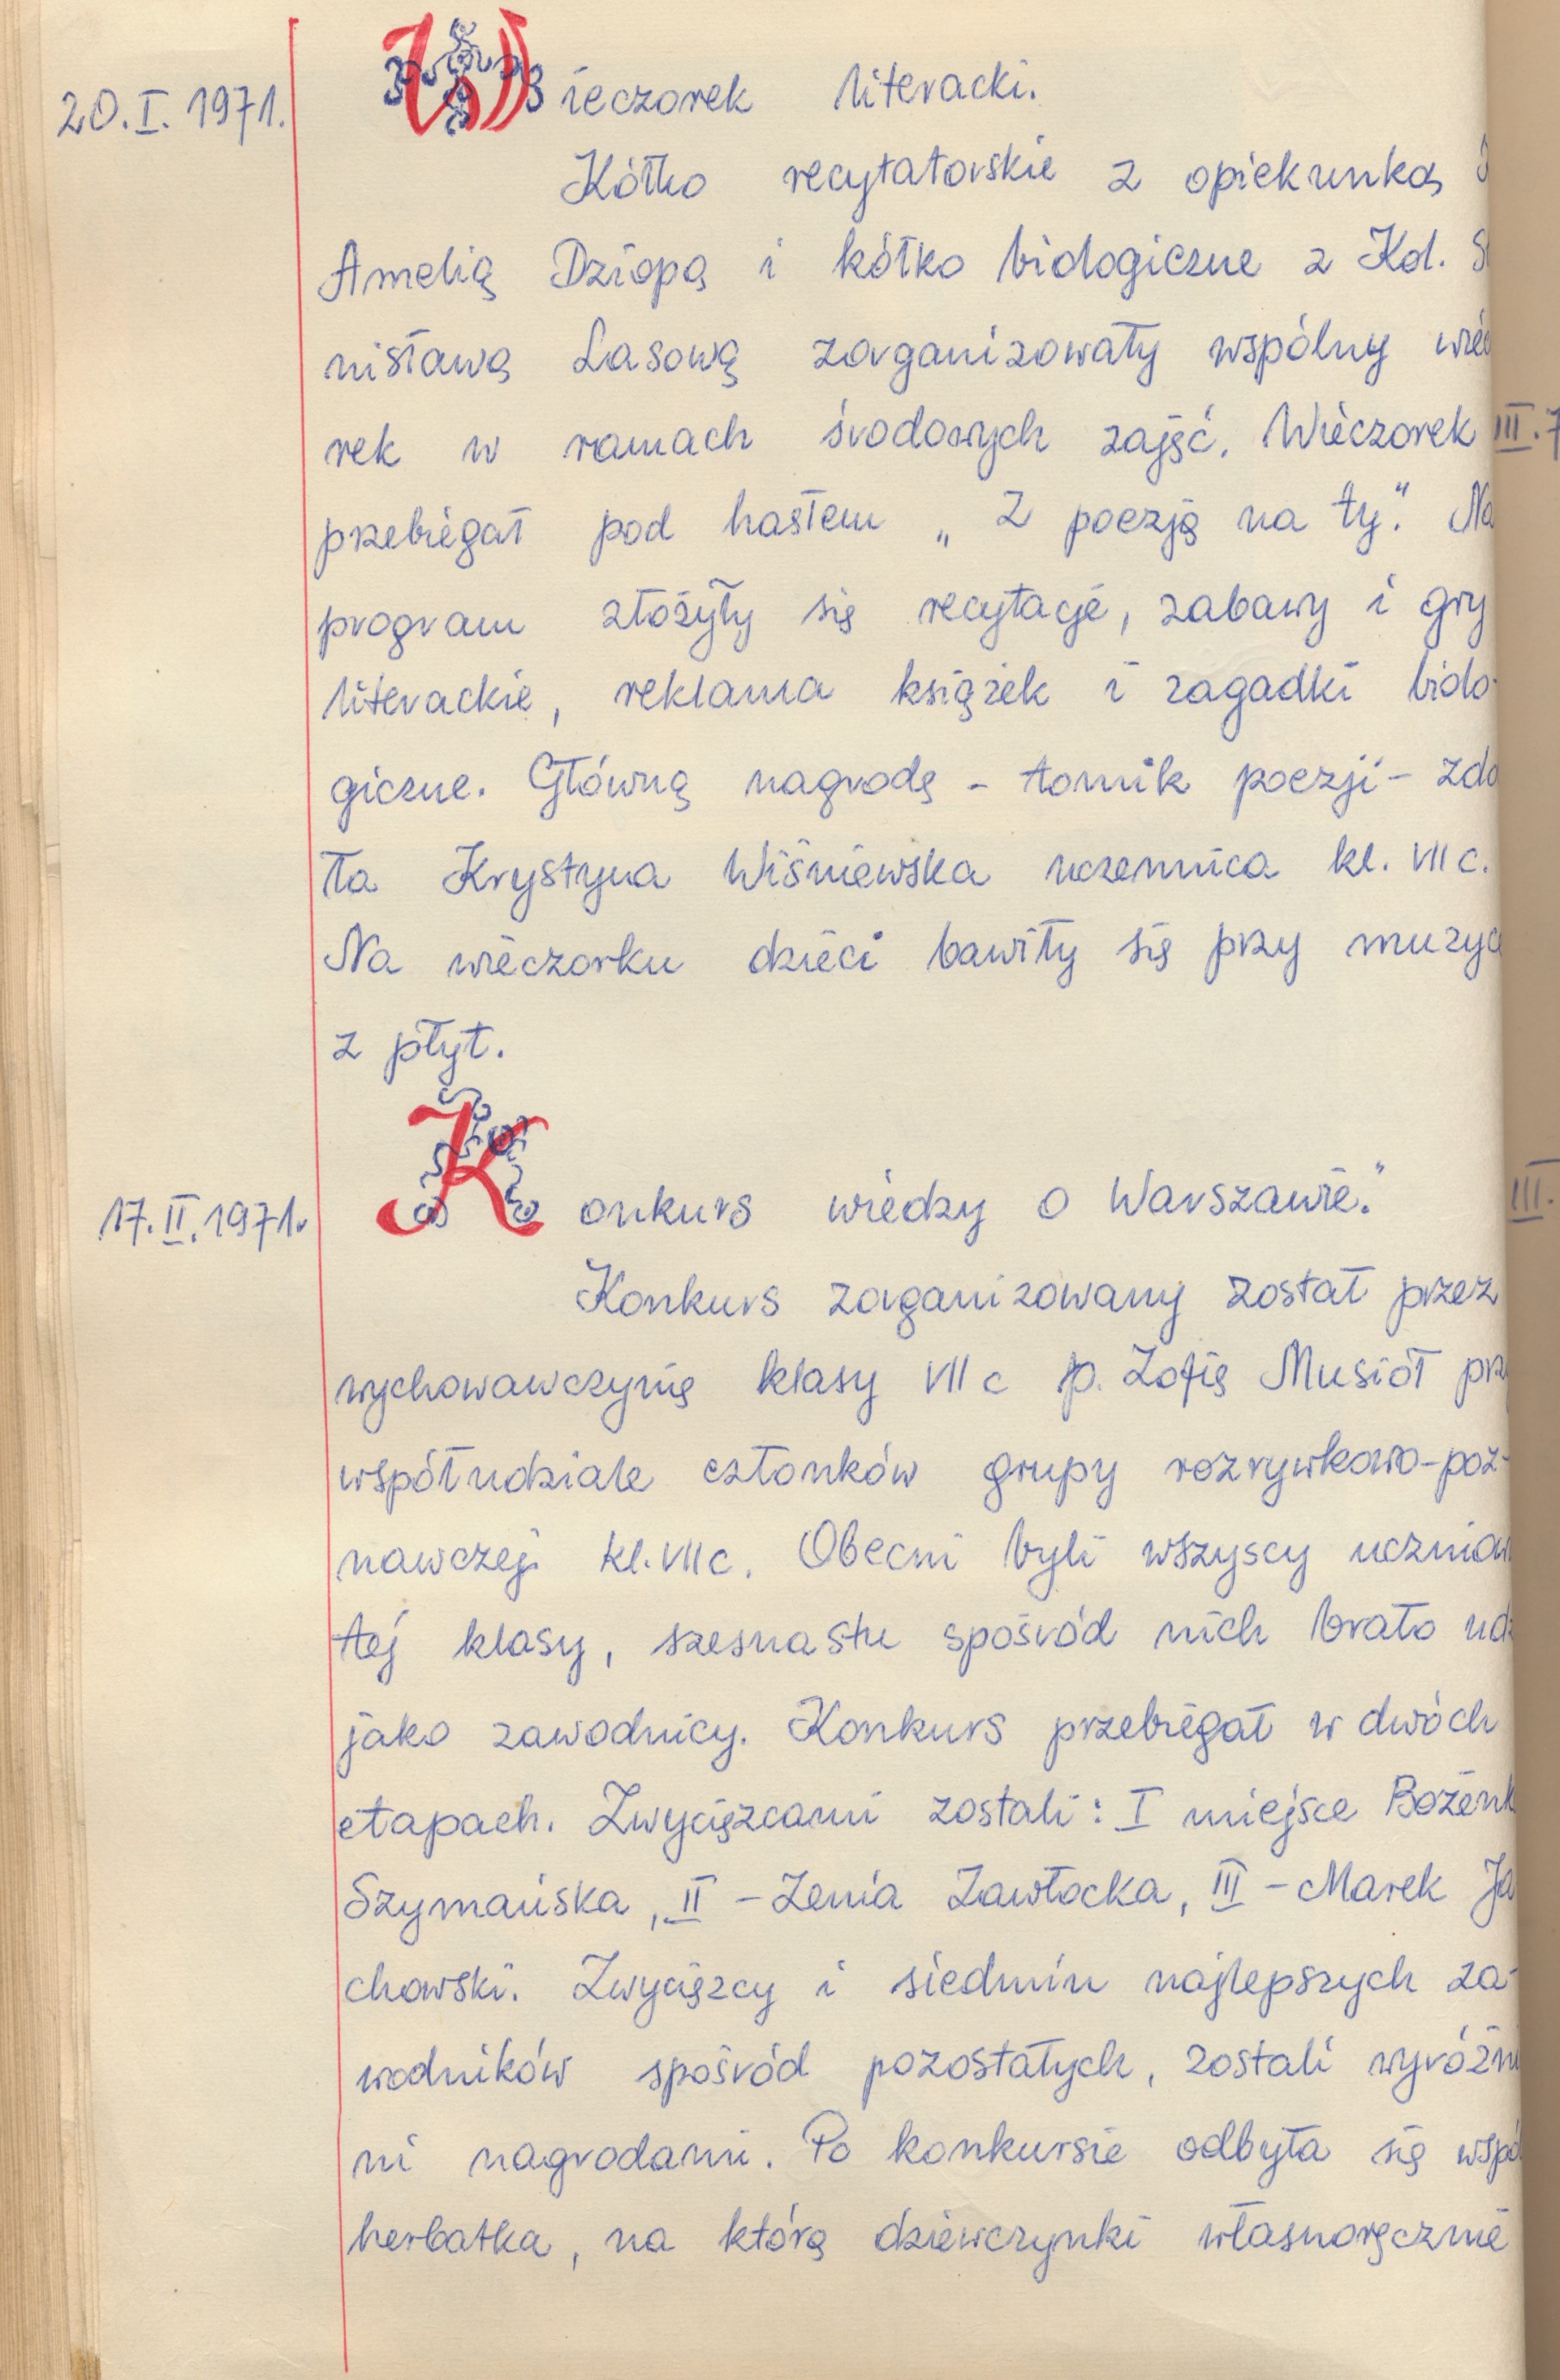 20.I.1971. Wieczorek literacki.
Kółko recytatorskie z opiekunką
Amelią Dziopą i kółko biologiczne z Kol. S
nisławą Lasową zorganizowały wspólny wie
rek w ramach środowych zajęć. Wieczorek
przebiegał pod hasłem „Z poezją na ty." Na
program złożyły się recytacje, zabawy i gry
literackie, reklama książek i zagadki biolo-
giczne. Główną nagrodę - tomik poezji - zdo
ła Krystyna Wiśniewska uczennica kl. VII c.
Na wieczorku dzieci bawiły się przy muzyc
z płyt.
17.II.1971r. Konkurs wiedzy o Warszawie."
Konkurs zorganizowany został przez
wychowawczynię klasy VII c p. Zofię Musiół prz
współudziale członków grupy rozrywkowo-poz-
nawczej kl. VII c. Obecni byli wszyscy uczniow
tej klasy, szesnastu spośród nich brało udz
jako zawodnicy. Konkurs przebiegał w dwóch
etapach. Zwycięzcami zostali: I miejsce Bożenk
Szymańska, II - Zenia Zawłocka, III - Marek Ja
chowski. Zwycięzcy i siedmiu najlepszych za-
wodników spośród pozostałych, zostali wyróżni
ni nagrodami. Po konkursie odbyła się wspó
herbatka, na którą dziewczynki własnoręcznie
III.7
III.